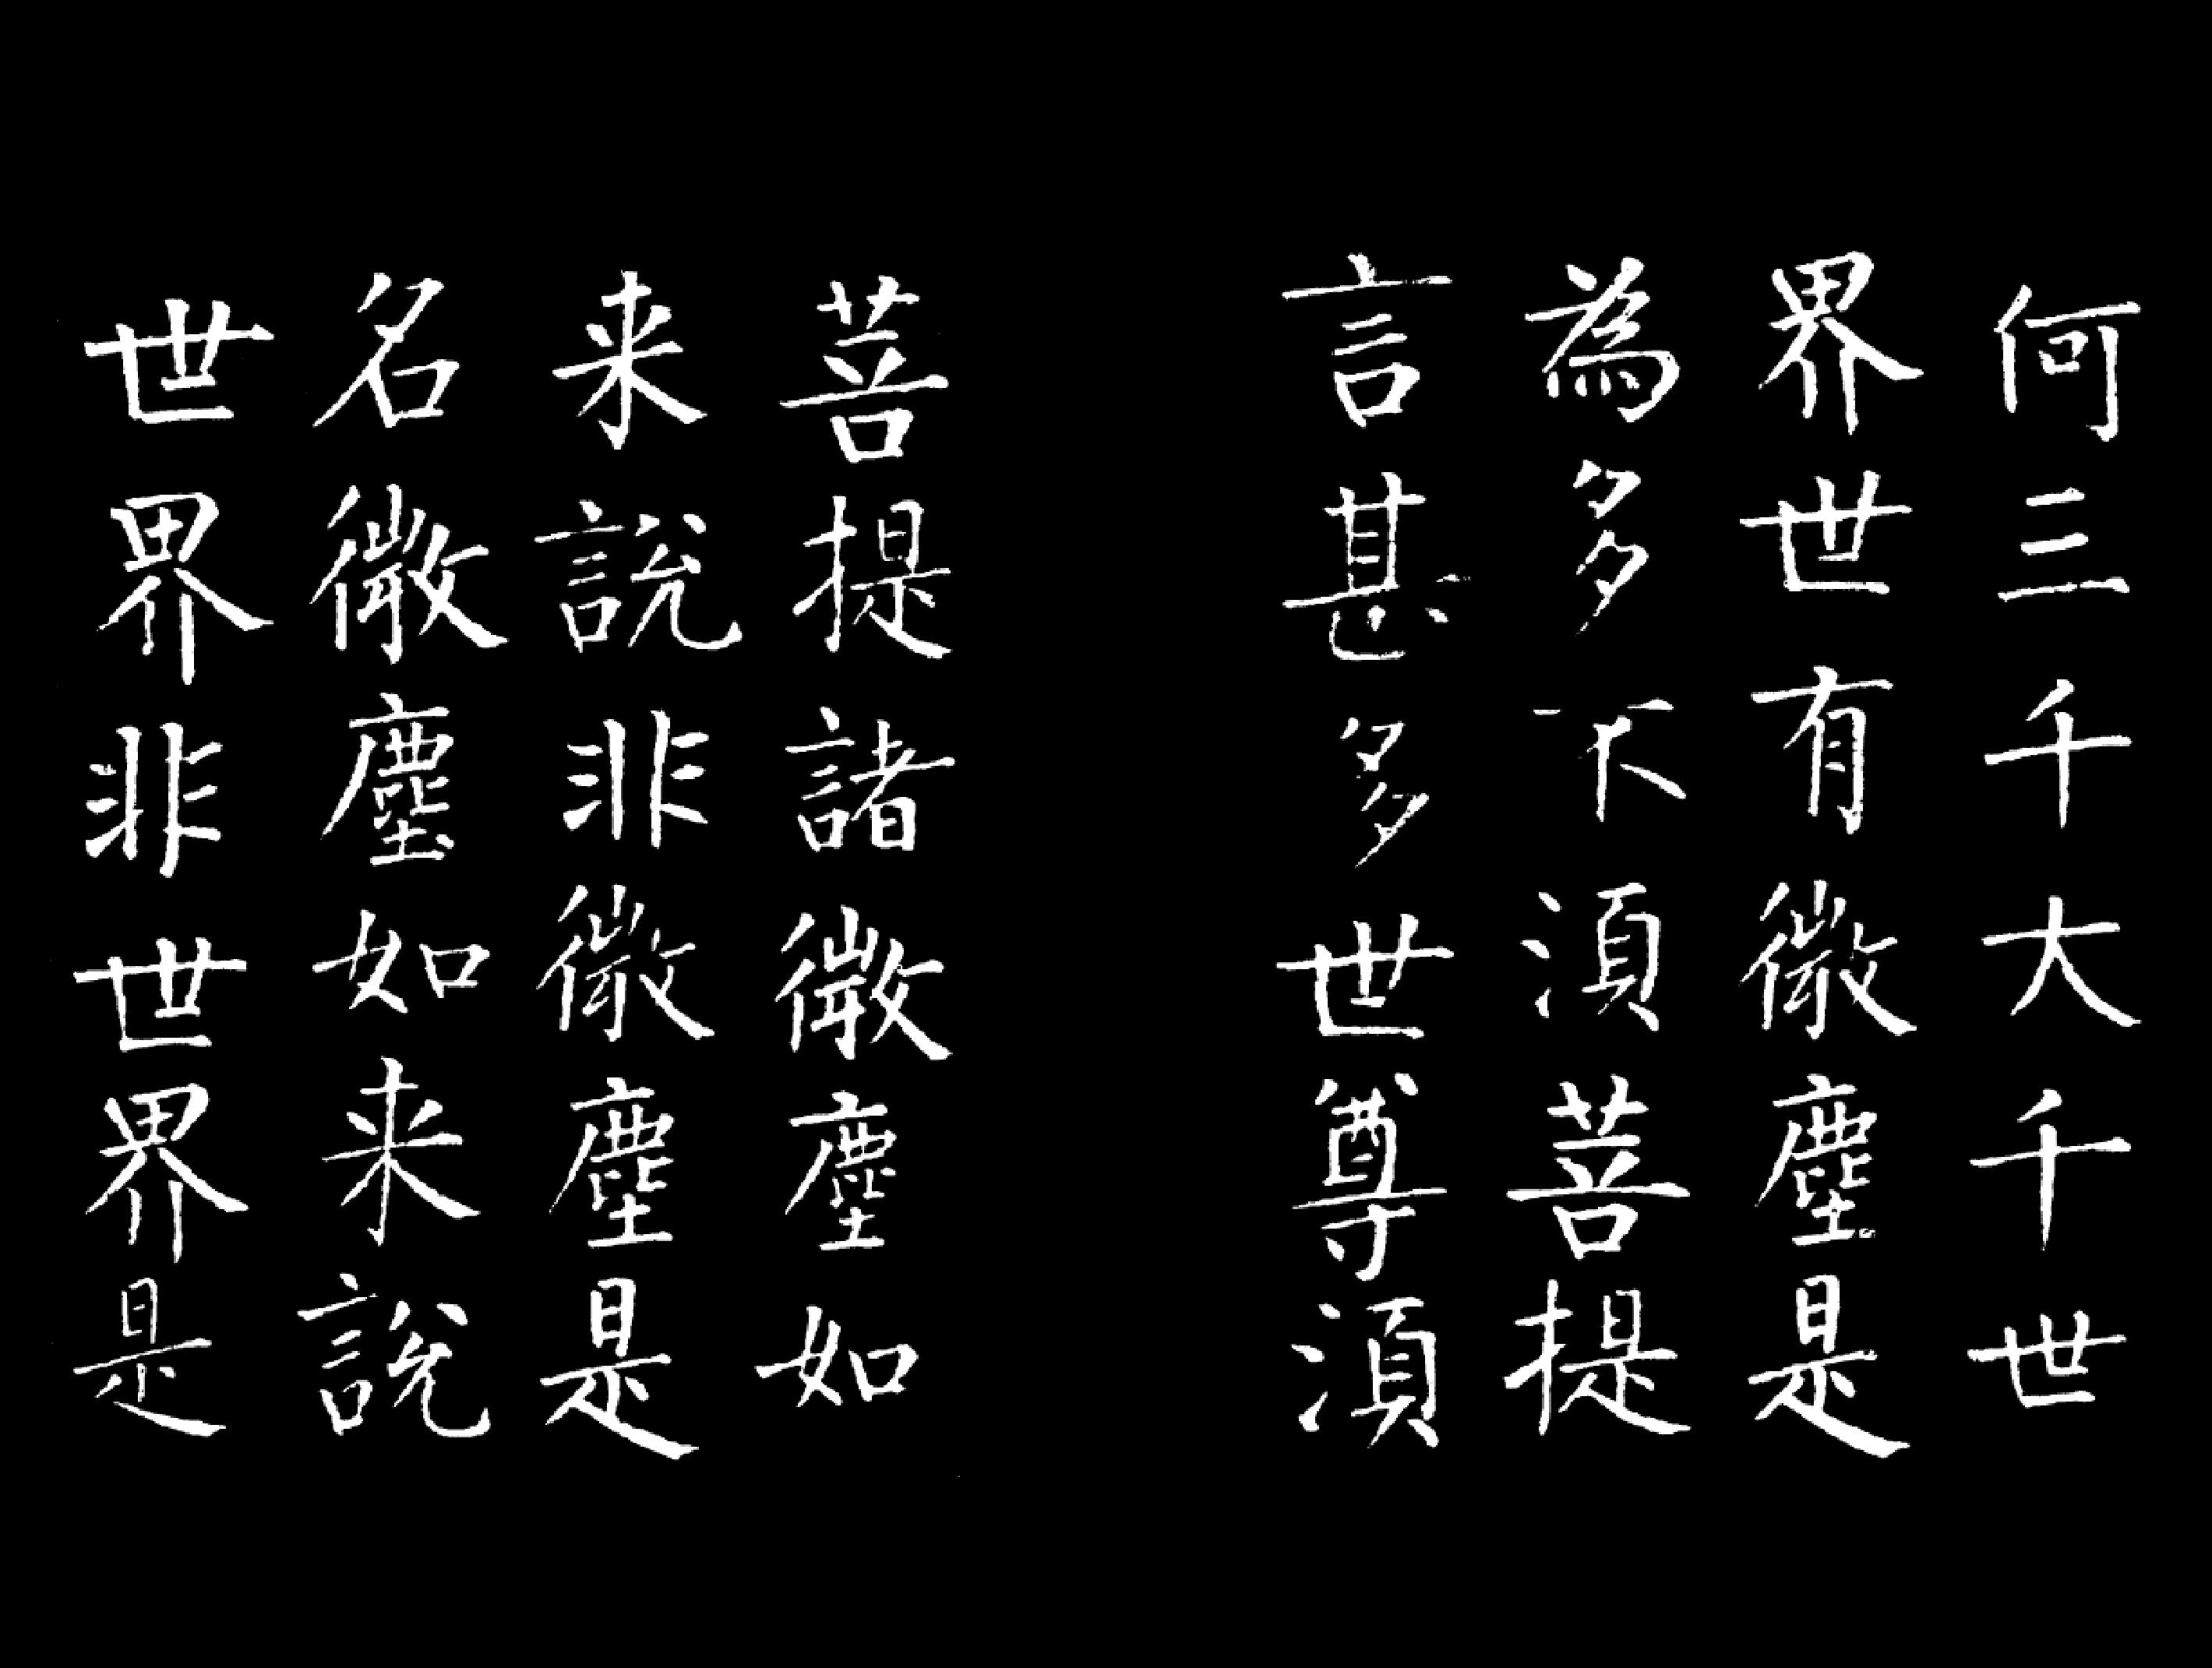 何三千大千世
界世有微塵是
為多不湏菩提
言甚多世尊湏
菩提諸微塵如
来說非微塵是
名微塵如来說
世界非世界是